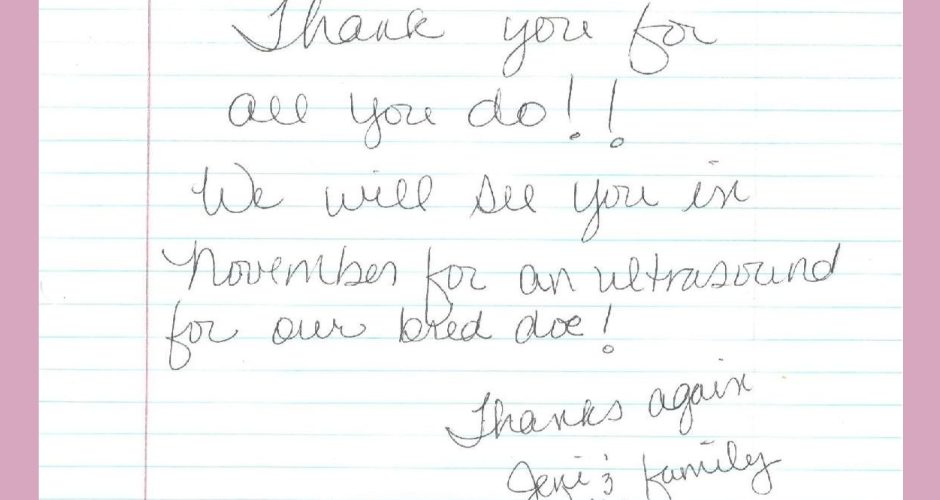 Thank you for
all you do!!
We will see you in
November for an ultrasound
for our bred doe!
Thanks again
Jeni & family